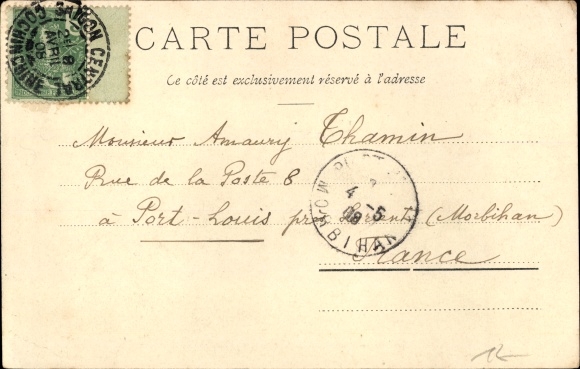 SAIGON CENTRAL
COCHINCHINE
AVRIL
CARTE POSTALE
Ce côté est exclusivement réservé à l'adresse
Monsieur Amaury Thamin
Rue de la Poste 8
à Port-Louis près Lorient (Morbihan)
France
MORBIHAN
4 -5
08